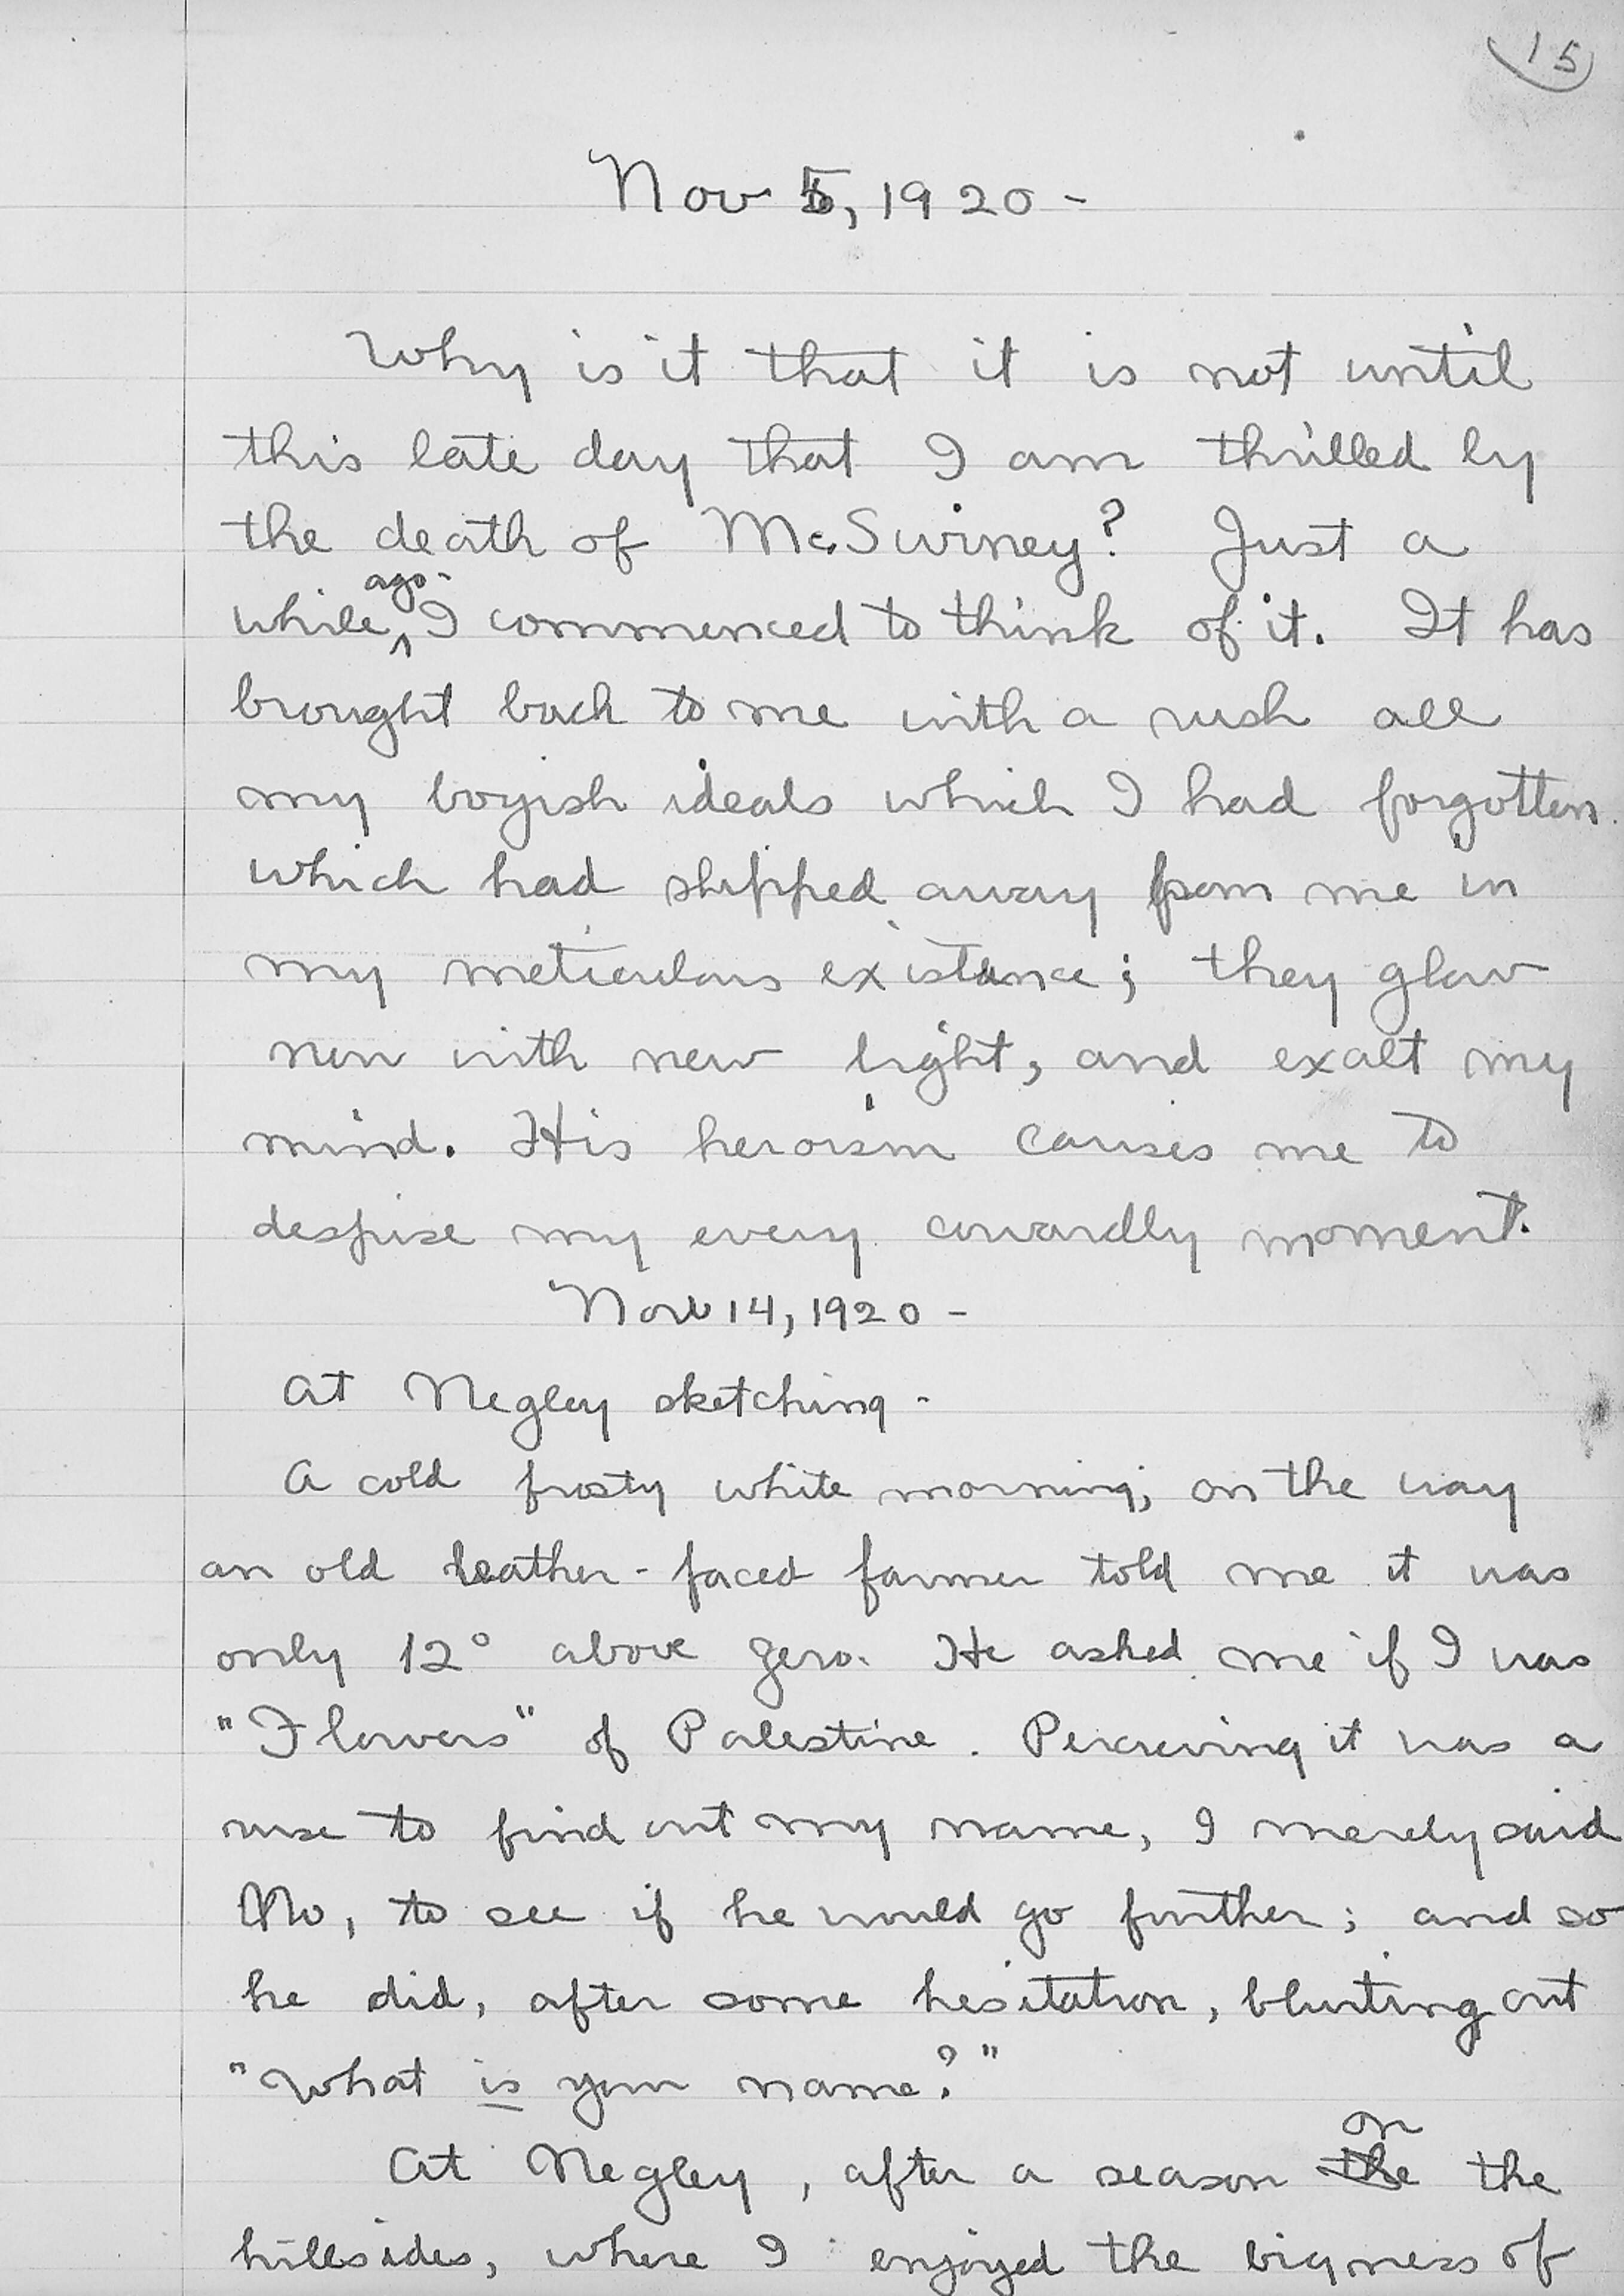 15
Nov 5, 1920 -
Why is it that it is not until
this late day that I am thrilled by
the death of McSwiney? Just a
while, ago I commenced to think of it. It has
brought back to me with a rush all
my boyish ideals which I had forgotten
which had slipped away from me in
my meticulous existance; they glow
now with new light, and exalt my
mind. His heroism causes me to
despise my every cowardly moment.
Nov 14, 1920 -
At Negley sketching -
A cold frosty white morning; on the way
an old leather-faced farmer told me it was
only 12° above zero. He asked me if I was
"Flowers" of Palestine. Perceiving it was a
ruse to find out my name, I merely said
No, to see if he would go further; and so
he did, after some hesitation, blurting out
"What is your name?"
At Negley, after a season the on the
hillsides, where I enjoyed the bigness of